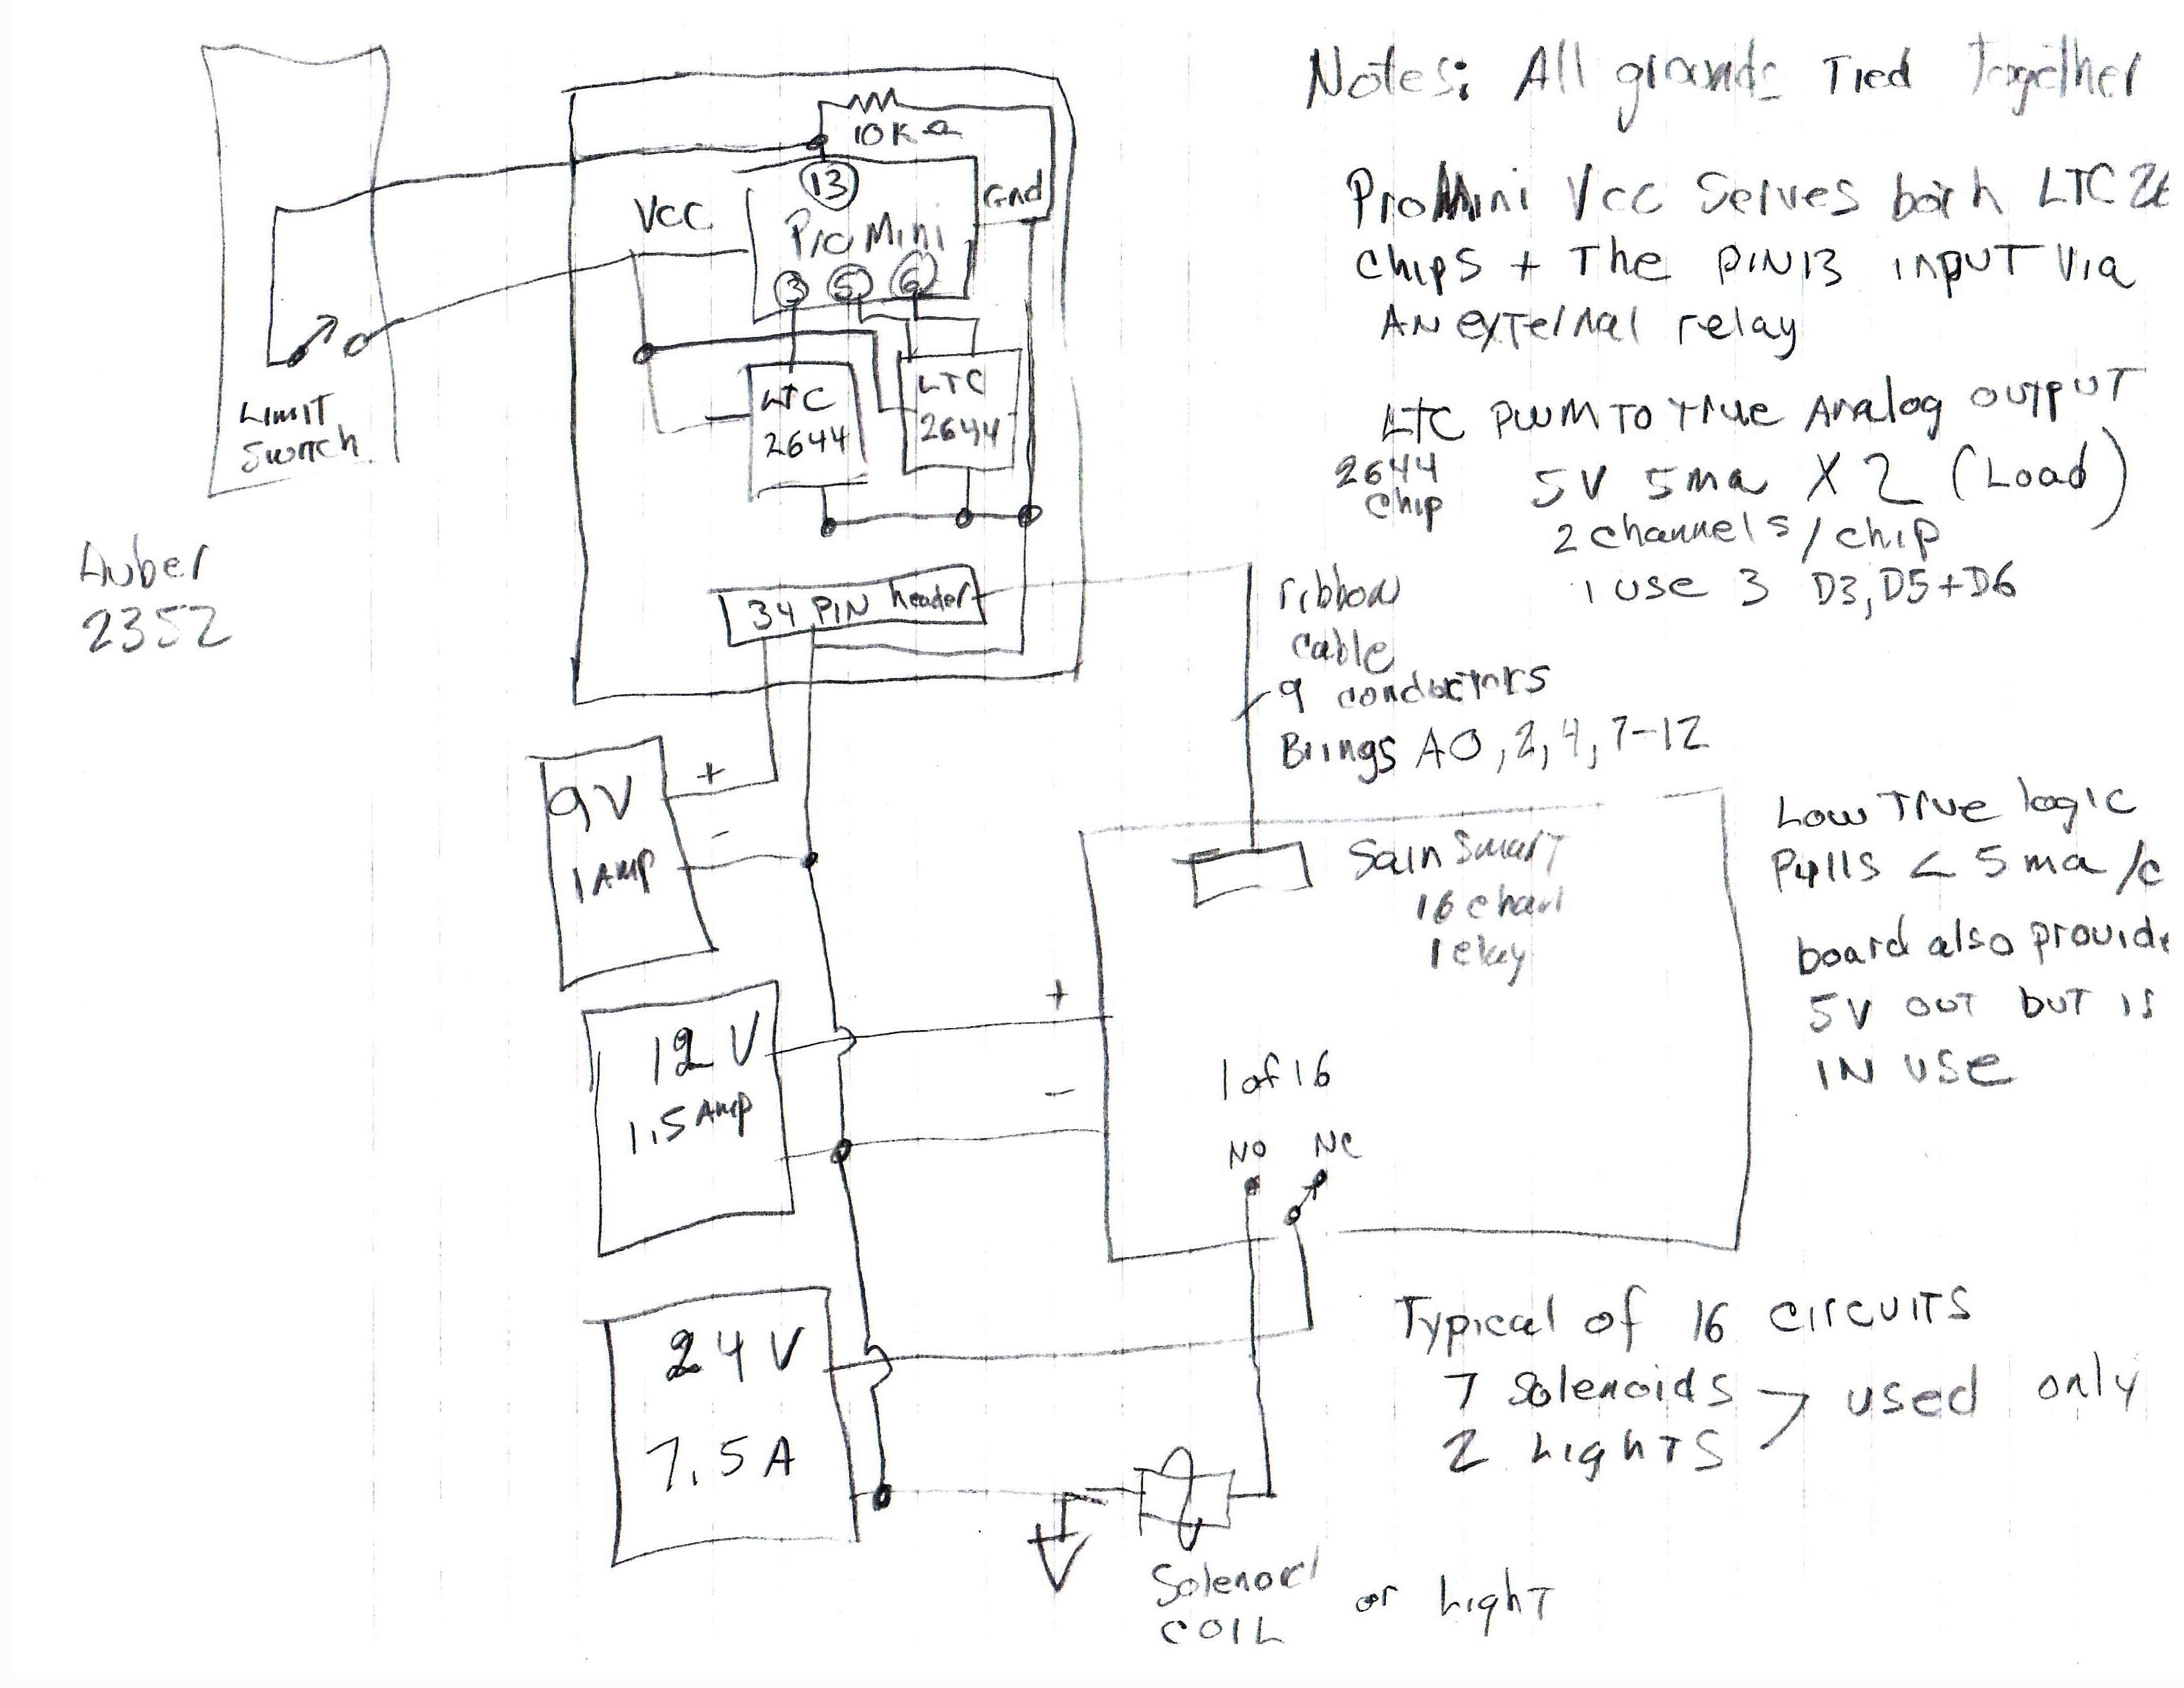 Notes: All grounds Tied Together
ProMini Vcc Serves both LTC 26
chips + The PIN13 input Via
AN external relay
LTC PWM TO True Analog output
2644
chip
5V 5ma X 2 (Load)
2 channels / chip
1 use 3 D3, D5+D6
10KΩ
13
VCC
Gnd
Pro Mini
3 5 6
LTC
2644
LTC
2644
Limit
Switch
Auber
2352
34 PIN header
ribbon
cable
9 conductors
Brings A0, 2, 4, 7-12
9V
1 AMP
+
-
SainSmart
16 chanl
relay
Low True logic
Pulls < 5 ma /c
board also provide
5V out but is
IN use
12 V
1.5 Amp
+
-
1 of 16
NO NC
24 V
7.5 A
Typical of 16 circuits
7 Solenoids > used only
2 Lights
Solenoid
COIL
or Light